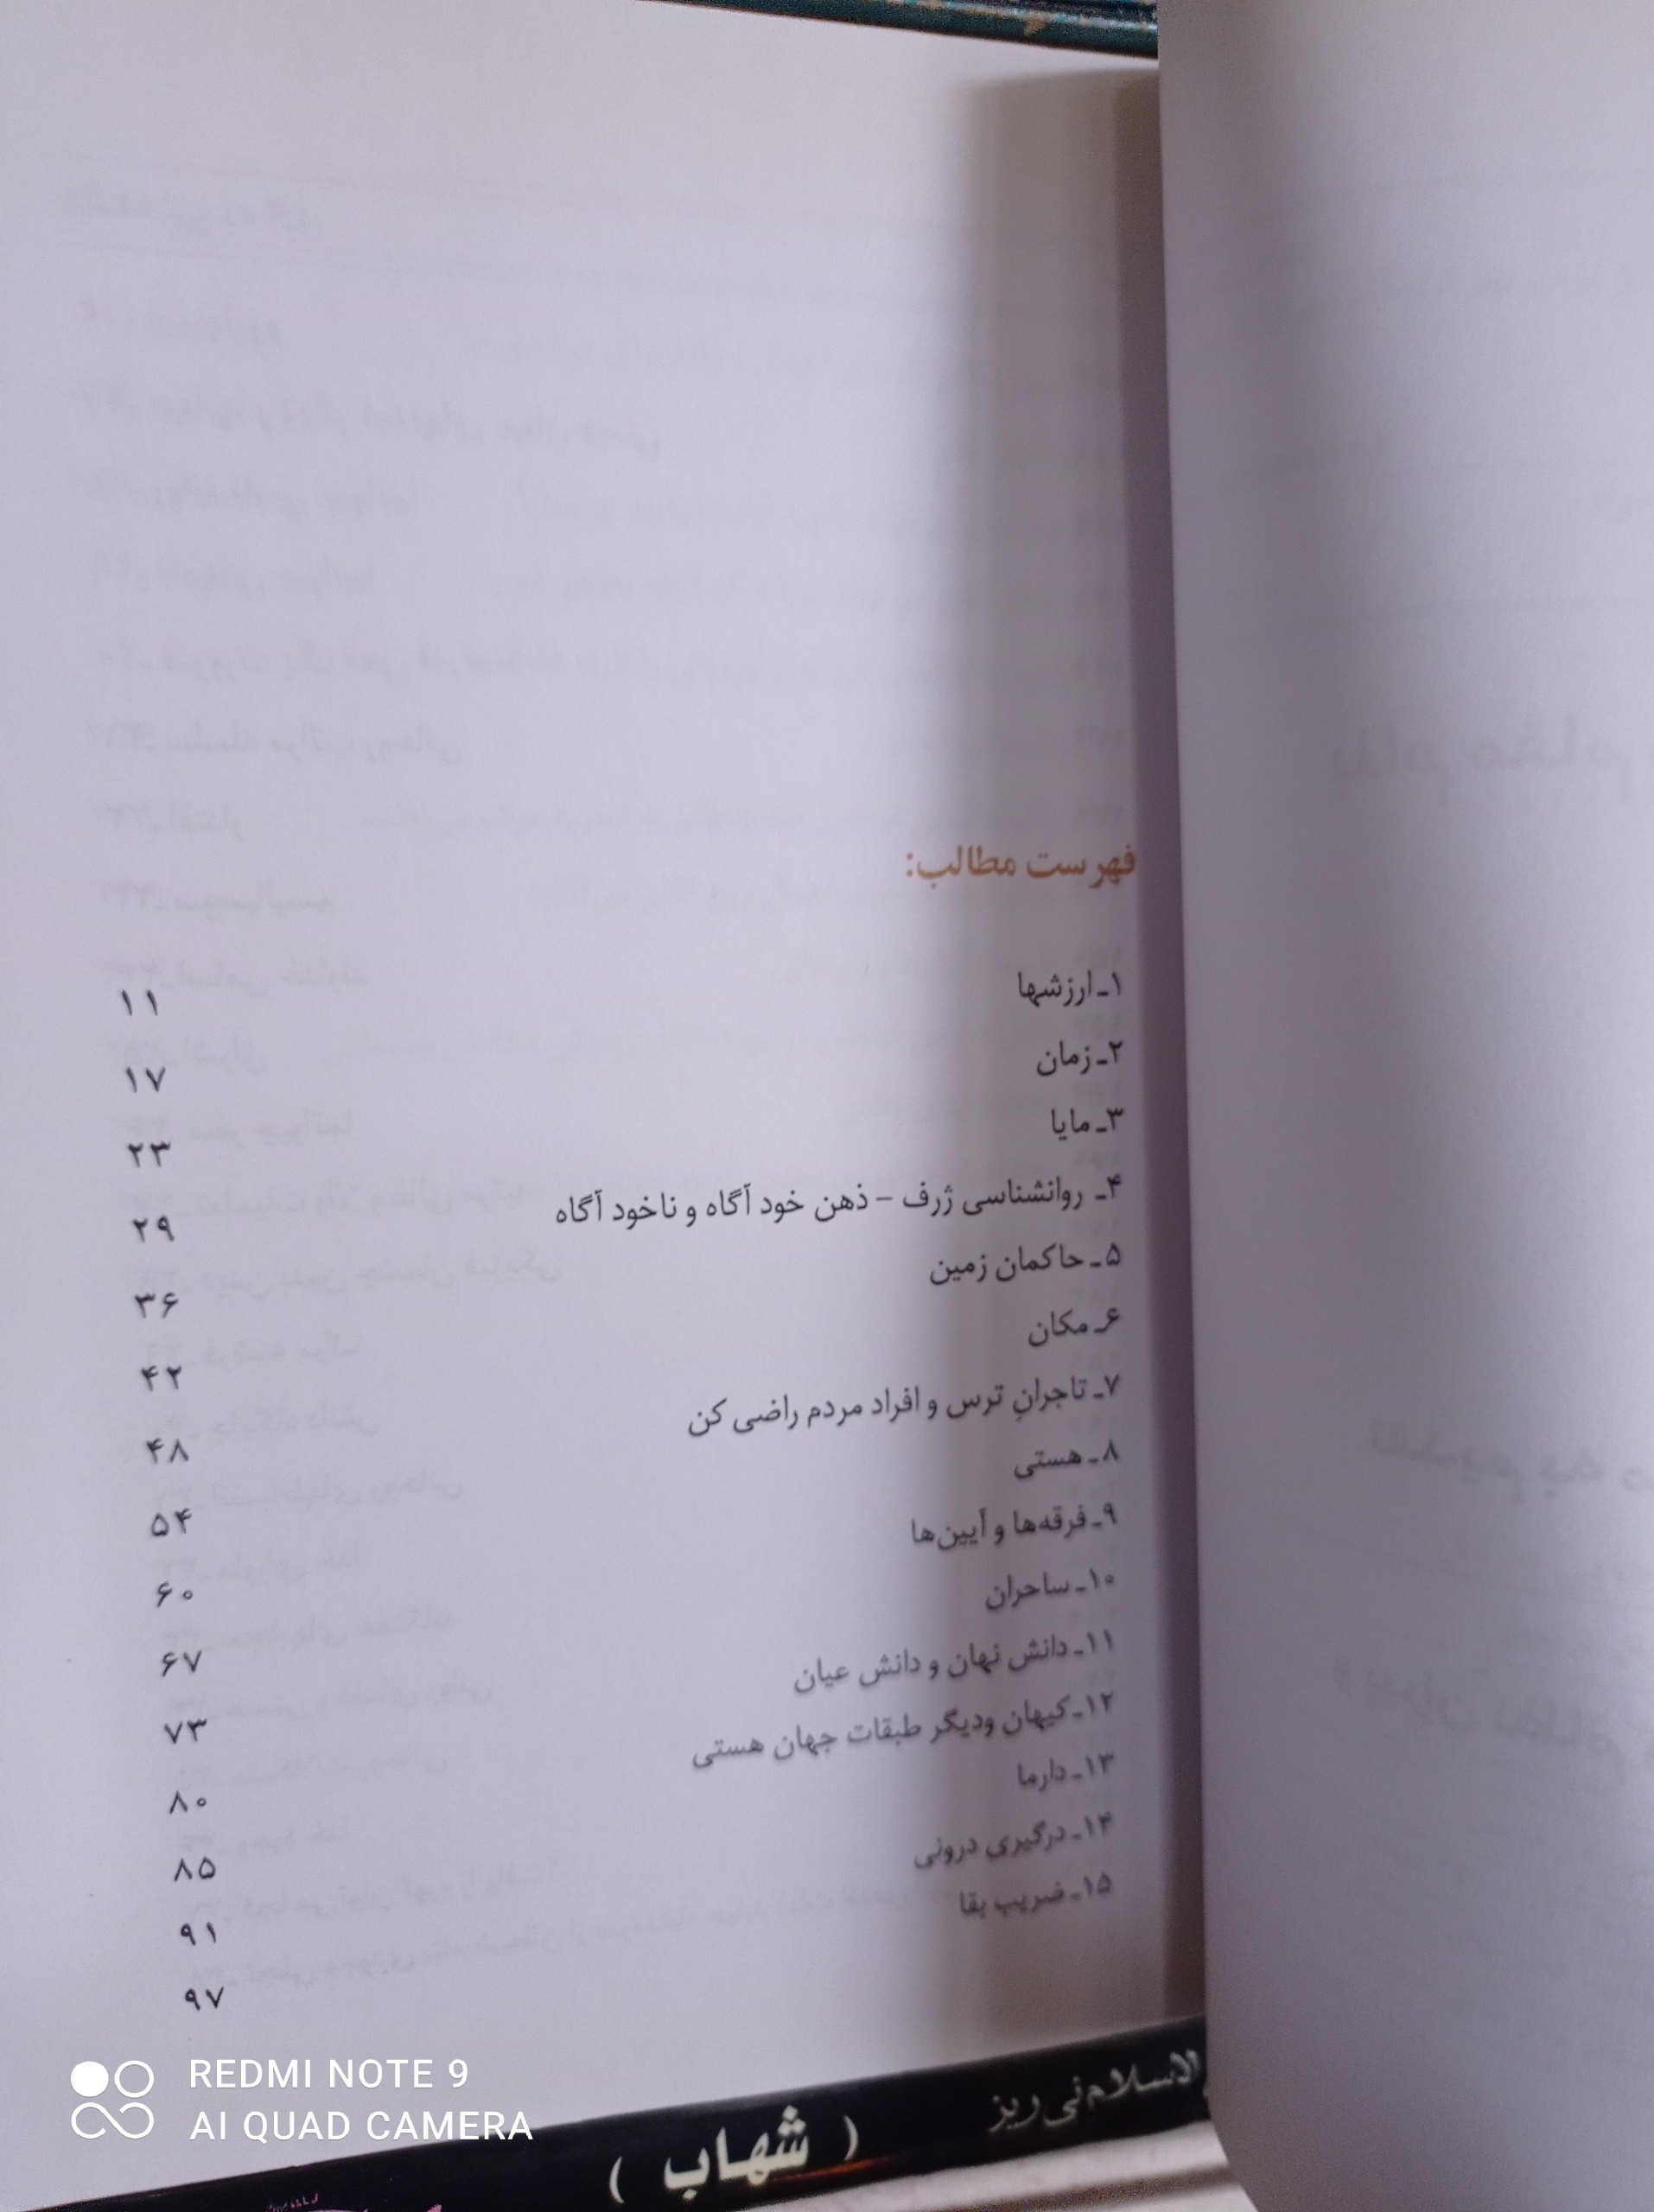 فهرست مطالب:
۱ـ ارزشها ۱۱
۲ـ زمان ۱۷
۳ـ مایا ۲۳
۴ـ روانشناسی ژرف – ذهن خود آگاه و ناخود آگاه ۲۹
۵ـ حاکمان زمین ۳۶
۶ـ مکان ۴۲
۷ـ تاجرانِ ترس و افراد مردم راضی کن ۴۸
۸ـ هستی ۵۴
۹ـ فرقه‌ها و آیین‌ها ۶۰
۱۰ـ ساحران ۶۷
۱۱ـ دانش نهان و دانش عیان ۷۳
۱۲ـ کیهان ودیگر طبقات جهان هستی ۸۰
۱۳ـ دارما ۸۵
۱۴ـ درگیری درونی ۹۱
۱۵ـ ضریب بقا ۹۷
الاسلام نی ریز
( شهاب )
REDMI NOTE 9
AI QUAD CAMERA